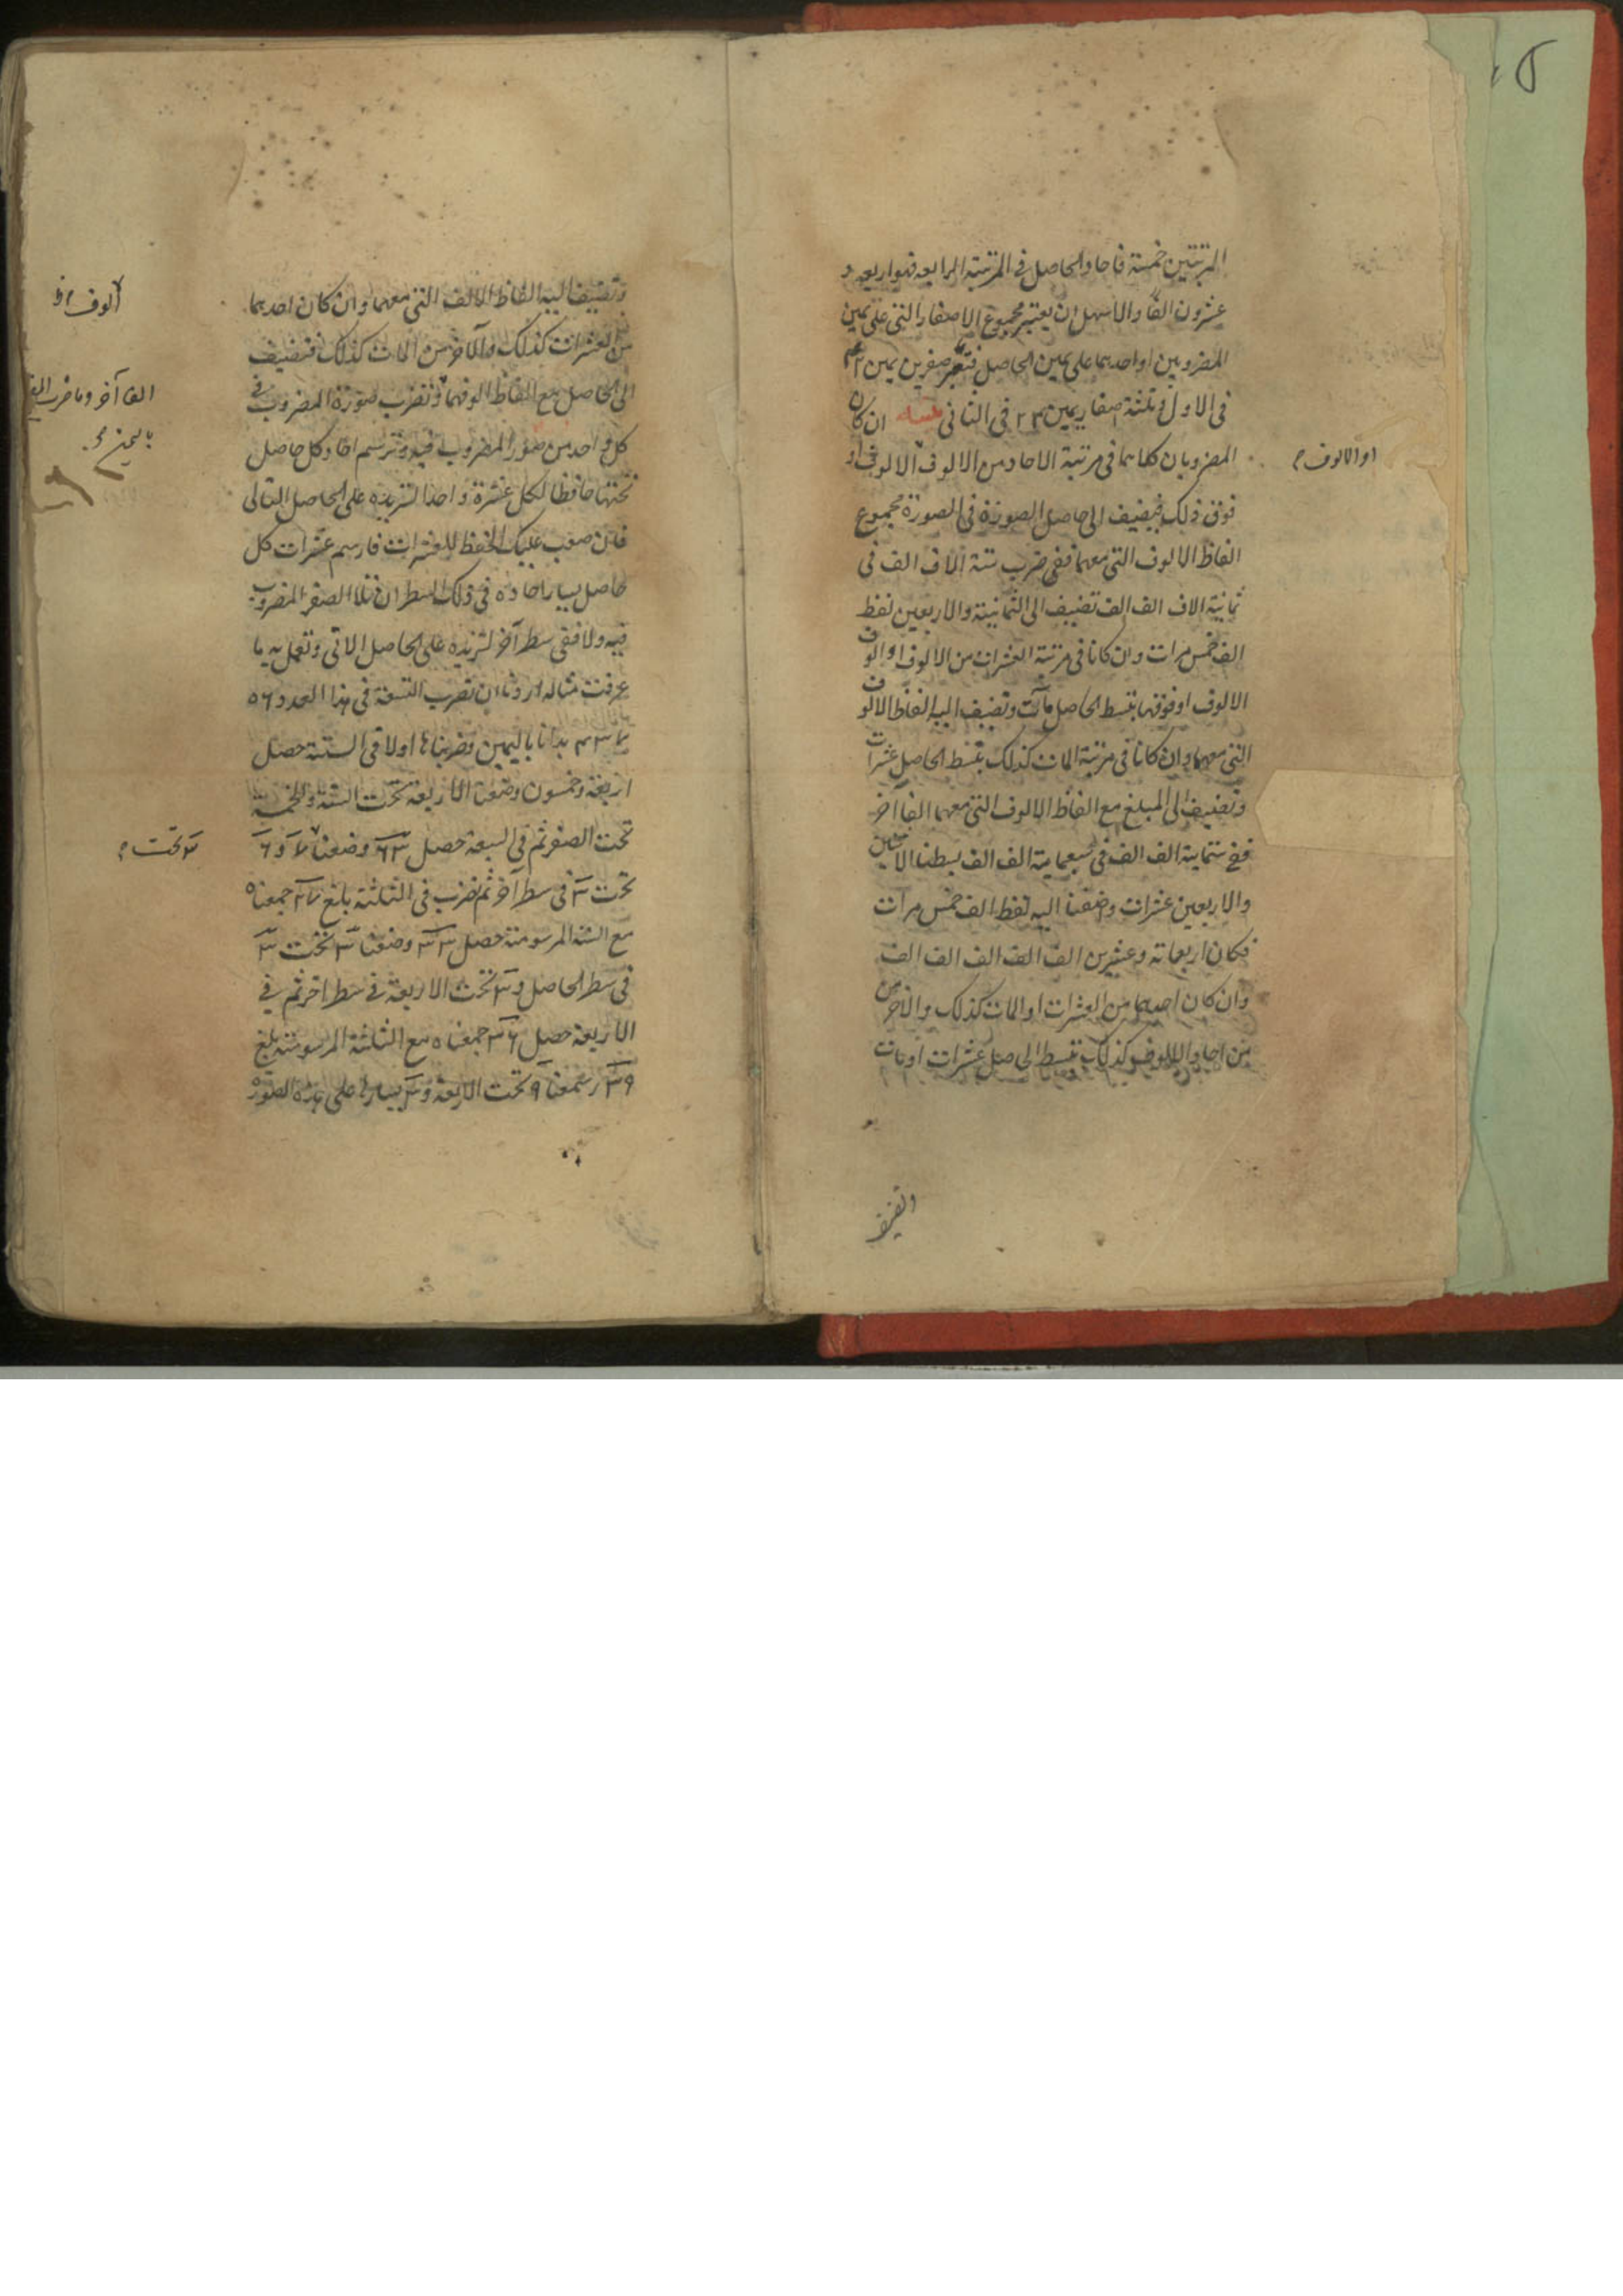 المرتبتين خمسة فآحاد الحاصل فى المرتبة الرابعة فهو اربعة و
عشرون الفا والاسهل ان يعتبر مجموع الاصفار التى على يمين
المضروبين او احدهما على يمين الحاصل فتعتبر صفرين يمين
فى الاول وثلثة اصفار يمين ٢٤ فى الثانى ان كان
المضروبان كلاهما فى مرتبة الاحاد من الالوف الالوف او
او الالوف
فوق ذلك فيضيف الى حاصل الصورة فى الصورة مجموع
الفاظ الالوف التى معهما ففى ضرب ستة الاف الف فى
ثمانية الاف الف الف تضيف الى الثمانية والاربعين لفظ
الف خمس مرات وان كانا فى مرتبة العشرات من الالوف او الوف
الالوف او فوقها بتبسط الحاصل مآت وتضيف اليه الفاظ الالوف
التى معهما وان كانا فى مرتبة المات كذلك بتبسط الحاصل عشرات
وتضيف الى المبلغ مع الفاظ الالوف التى معهما الفا آخر
ففى ستماية الف الف فى سبعماية الف الف بسطنا الاثنين
والاربعين عشرات واضفنا اليه لفظ الف خمس مرات
فكان اربعماته وعشرين الف الف الف الف الف
وان كان احدهما من العشرات او المات كذلك والآخر من
من احاد الالوف كذلك تبسط الحاصل عشرات او مات
وتضيف
وتضيف اليه الفاظ الالف التى معهما وان كان احدهما
الوف
من العشرات كذلك والآخر من المات كذلك فتضيف
الى الحاصل مع الفاظ الوفهما وتضرب صورة المضروب فى
الفا آخر وما ضرب
كل واحد من صور المضروب فيه وترسم احاد كل حاصل
باليمين
تحتها حافظا لكل عشرة واحدا لتزيده على الحاصل التالى
فان صعب عليك الحفظ للعشرات فارسم عشرات كل
حاصل يسار احاده فى ذلك السطر ان تلا الصفر المضروب
فيه ولا ففى سطر آخر لتزيده على الحاصل الآتى وتعمل به ما
عرفت مثاله اردنا ان نضرب التسعة فى هذا العدد ٥٦
بدانا باليمين وضربناها اولا فى الستة حصل
اربعة وخمسون وضعنا الاربعة تحت الستة والخمسة
تحت الصفر ثم فى السبعة حصل ٦٣ وضعنا
تحت
تحت ٣ فى سطر آخر ثم نضرب فى الثلثة بلغ ٢٧ جمعناه
مع الستة المرسومة حصل ٣٣ وضعنا ٣ تحت ٣
فى سطر الحاصل و ٣ تحت الاربعة فى سطر اخر ثم فى
الاربعة حصل ٣٦ جمعناه مع الثلثة المرسومة بلغ
٣٩ رسمنا ٩ تحت الاربعة و ٣ يسارها على هذه الصورة